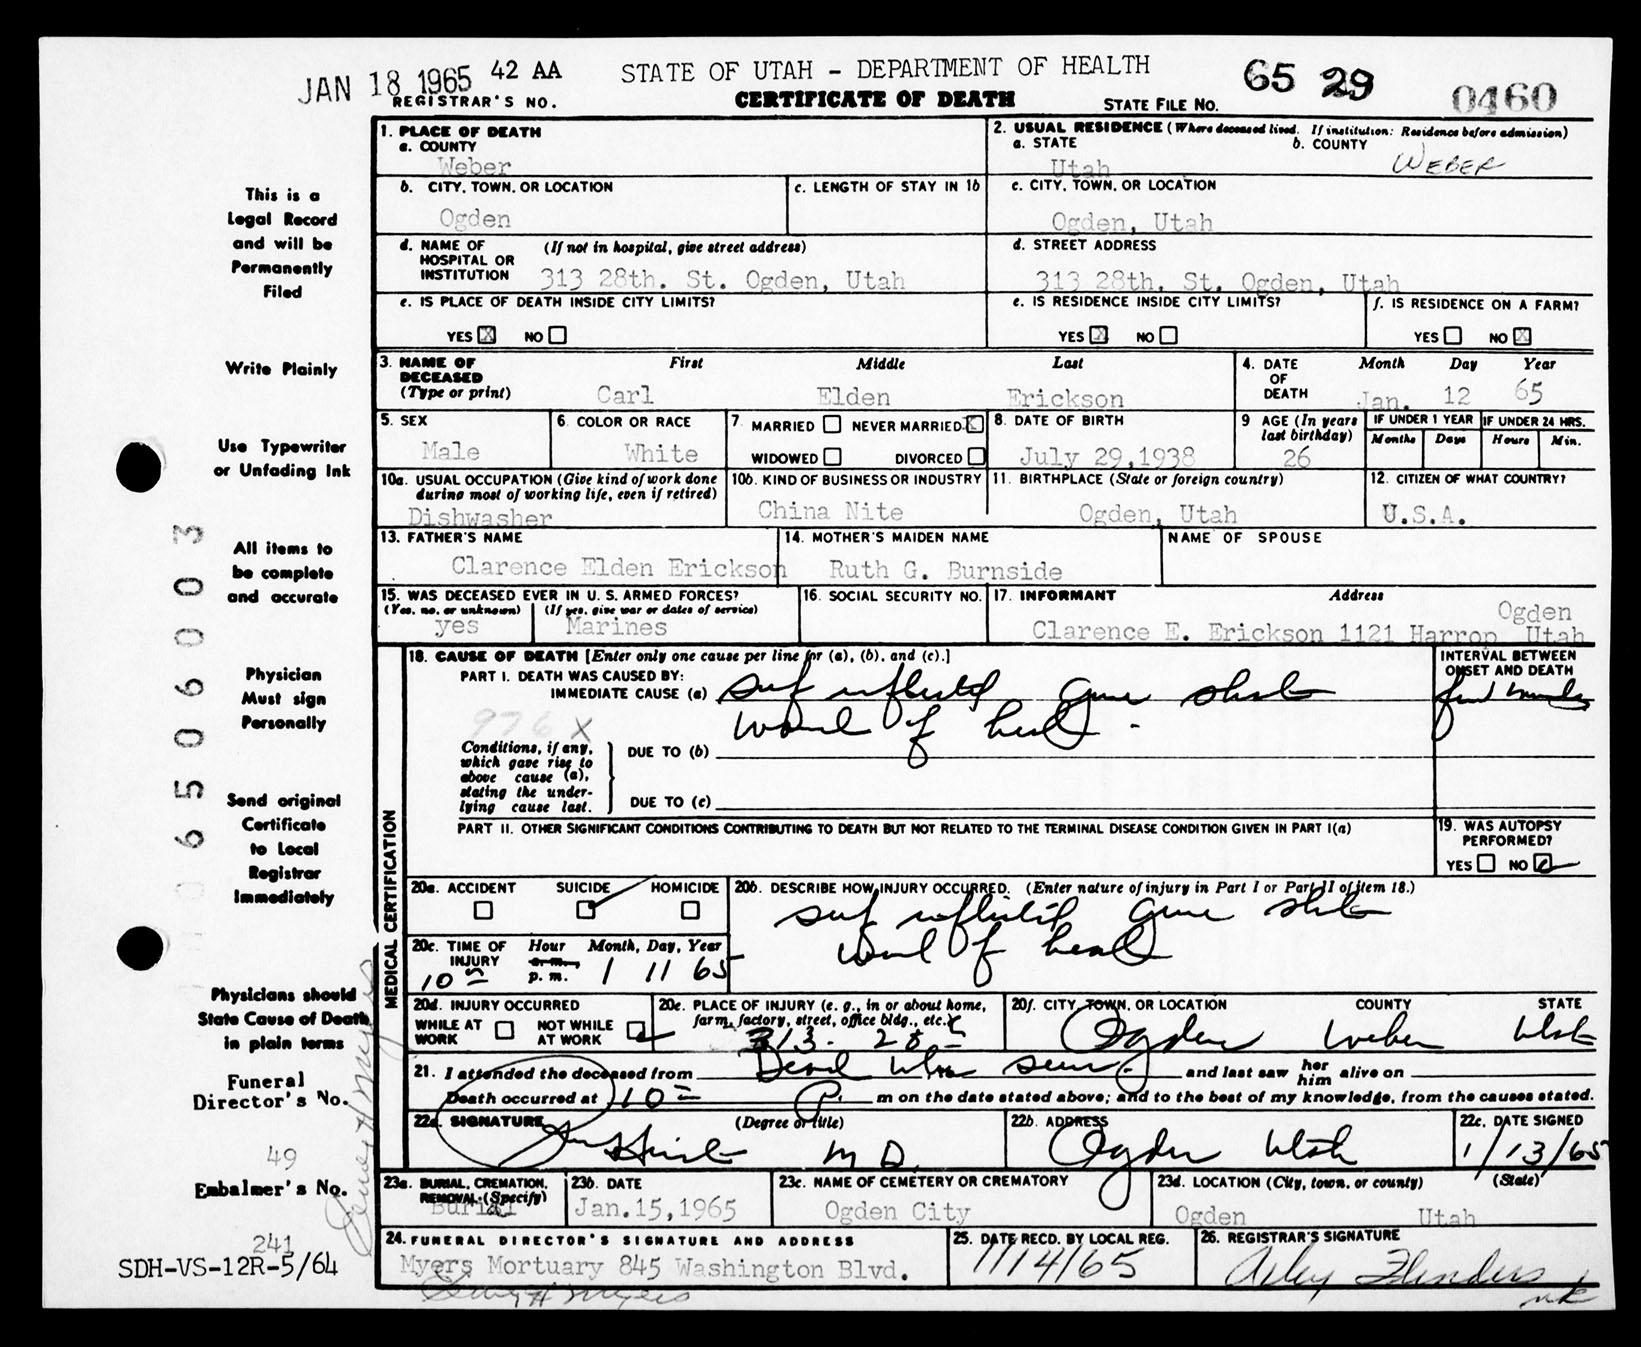 JAN 18 1965 42 AA STATE OF UTAH - DEPARTMENT OF HEALTH 65 29 0460
REGISTRAR'S NO. CERTIFICATE OF DEATH STATE FILE NO.
This is a
Legal Record
and will be
Permanently
Filed
Write Plainly
Use Typewriter
or Unfading Ink
All items to
be complete
and accurate
Physician
Must sign
Personally
Send original
Certificate
to Local
Registrar
Immediately
Physicians should
State Cause of Death
in plain terms
Funeral
Director's No.
49
Embalmer's No.
241
SDH-VS-12R-5/64
06506003
1. PLACE OF DEATH
a. COUNTY
Weber
2. USUAL RESIDENCE (Where deceased lived. If institution: Residence before admission)
a. STATE b. COUNTY
Utah WEBER
b. CITY, TOWN, OR LOCATION c. LENGTH OF STAY IN 1b
Ogden
c. CITY, TOWN, OR LOCATION
Ogden, Utah
d. NAME OF HOSPITAL OR INSTITUTION (If not in hospital, give street address)
313 28th. St. Ogden, Utah
d. STREET ADDRESS
313 28th. St. Ogden, Utah
e. IS PLACE OF DEATH INSIDE CITY LIMITS?
YES X NO
e. IS RESIDENCE INSIDE CITY LIMITS?
YES X NO
f. IS RESIDENCE ON A FARM?
YES NO X
3. NAME OF DECEASED (Type or print) First Middle Last
Carl Elden Erickson
4. DATE OF DEATH Month Day Year
Jan. 12 65
5. SEX
Male
6. COLOR OR RACE
White
7. MARRIED NEVER MARRIED X
WIDOWED DIVORCED
8. DATE OF BIRTH
July 29,1938
9 AGE (In years last birthday)
26
IF UNDER 1 YEAR IF UNDER 24 HRS.
Months Days Hours Min.
10a. USUAL OCCUPATION (Give kind of work done during most of working life, even if retired)
Dishwasher
10b. KIND OF BUSINESS OR INDUSTRY
China Nite
11. BIRTHPLACE (State or foreign country)
Ogden, Utah
12. CITIZEN OF WHAT COUNTRY?
U.S.A.
13. FATHER'S NAME
Clarence Elden Erickson
14. MOTHER'S MAIDEN NAME
Ruth G. Burnside
NAME OF SPOUSE
15. WAS DECEASED EVER IN U. S. ARMED FORCES?
(Yes, no, or unknown) (If yes, give war or dates of service)
yes Marines
16. SOCIAL SECURITY NO.
17. INFORMANT Address
Clarence E. Erickson 1121 Harrop Ogden Utah
MEDICAL CERTIFICATION
18. CAUSE OF DEATH [Enter only one cause per line for (a), (b), and (c).]
PART I. DEATH WAS CAUSED BY:
IMMEDIATE CAUSE (a) self inflicted gun shot
wound of head
INTERVAL BETWEEN ONSET AND DEATH
976 X
Conditions, if any, which gave rise to above cause (a), stating the underlying cause last.
DUE TO (b)
DUE TO (c)
PART II. OTHER SIGNIFICANT CONDITIONS CONTRIBUTING TO DEATH BUT NOT RELATED TO THE TERMINAL DISEASE CONDITION GIVEN IN PART I(a)
19. WAS AUTOPSY PERFORMED?
YES NO
20a. ACCIDENT SUICIDE HOMICIDE
20b. DESCRIBE HOW INJURY OCCURRED. (Enter nature of injury in Part I or Part II of item 18.)
self inflicted gun shot
wound of head
20c. TIME OF INJURY Hour Month, Day, Year
10 a.m. p.m. 1 11 65
20d. INJURY OCCURRED
WHILE AT WORK NOT WHILE AT WORK
20e. PLACE OF INJURY (e. g., in or about home, farm, factory, street, office bldg., etc.)
313 - 28
20f. CITY, TOWN, OR LOCATION COUNTY STATE
Ogden Weber Utah
21. I attended the deceased from Dead when seen and last saw her him alive on
Death occurred at 10 P. m on the date stated above; and to the best of my knowledge, from the causes stated.
22a. SIGNATURE (Degree or title)
M D.
22b. ADDRESS
Ogden Utah
22c. DATE SIGNED
1/13/65
23a. BURIAL, CREMATION, REMOVAL (Specify)
Burial
23b. DATE
Jan.15,1965
23c. NAME OF CEMETERY OR CREMATORY
Ogden City
23d. LOCATION (City, town, or county) (State)
Ogden Utah
24. FUNERAL DIRECTOR'S SIGNATURE AND ADDRESS
Myers Mortuary 845 Washington Blvd.
25. DATE RECD. BY LOCAL REG.
1/14/65
26. REGISTRAR'S SIGNATURE